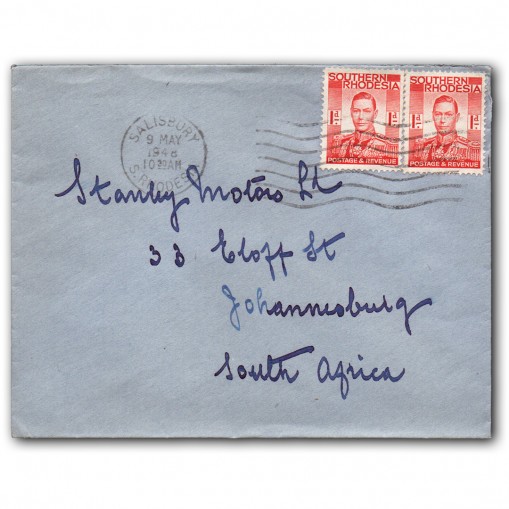 SOUTHERN RHODESIA
1D
POSTAGE & REVENUE
SOUTHERN RHODESIA
1D
POSTAGE & REVENUE
SALISBURY
9 MAY
1948
10 AM
S. RHODESIA
Stanley Motors Lt
33 Eloff St
Johannesburg
South Africa